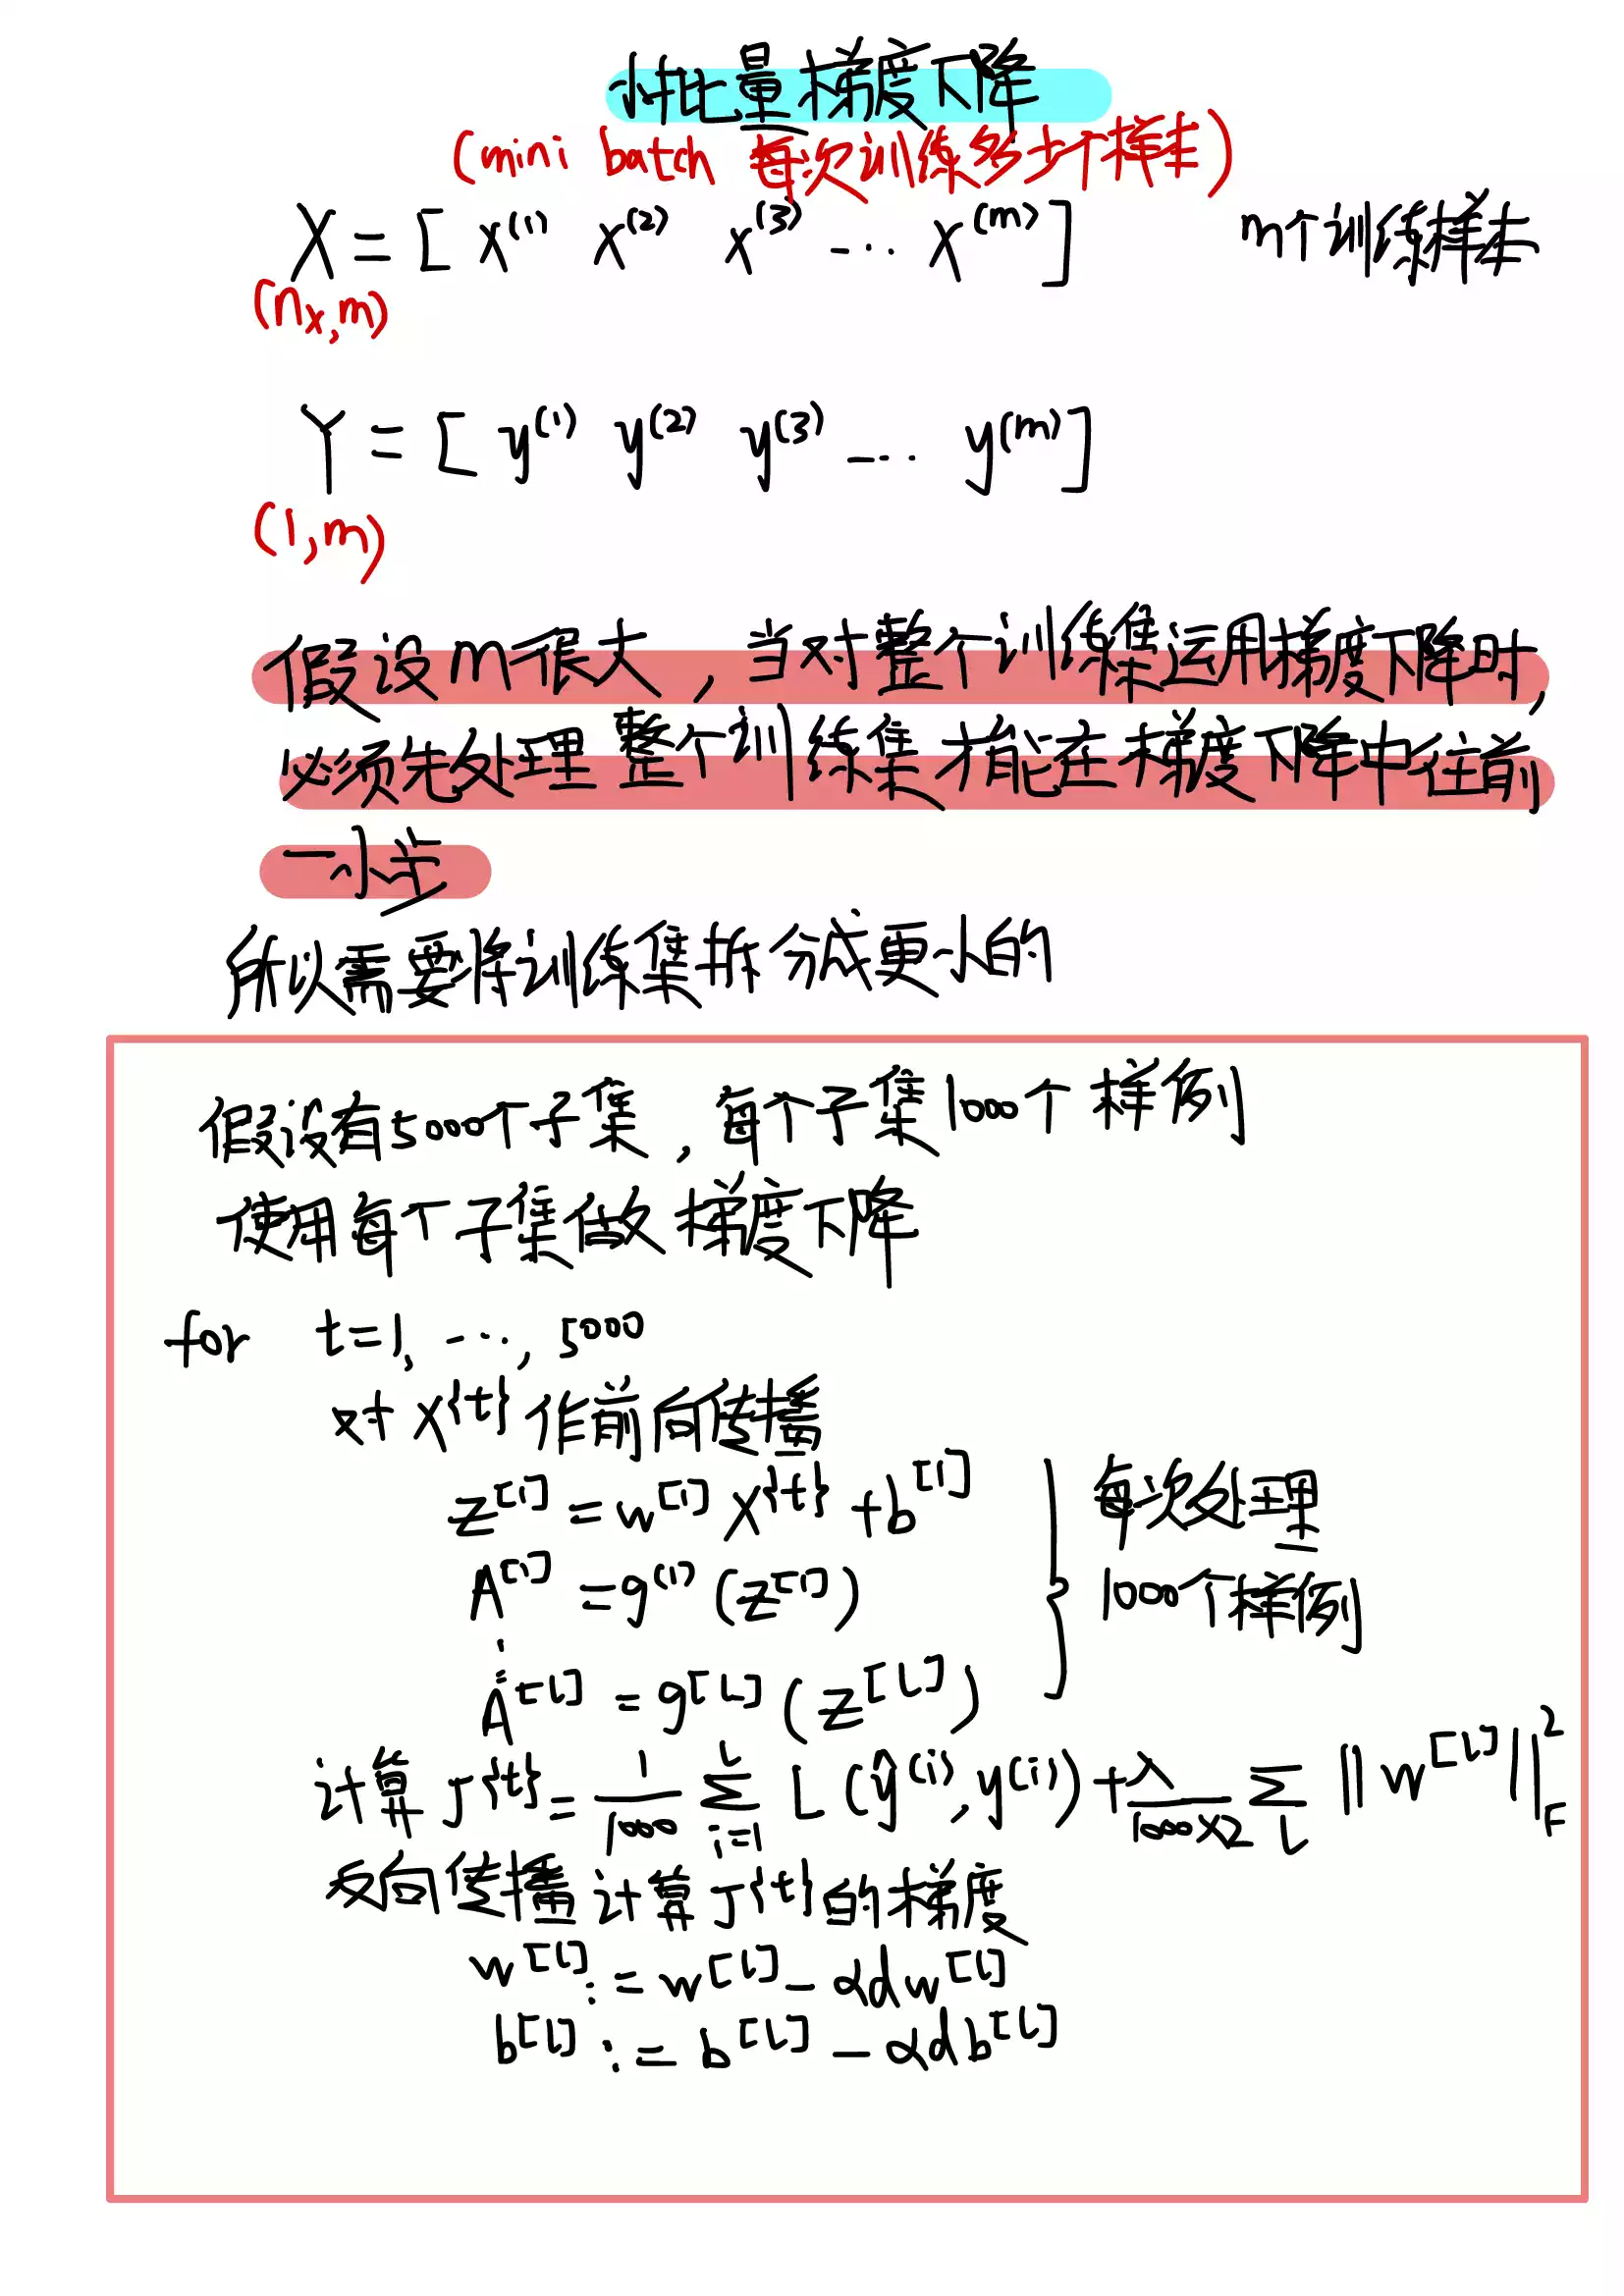 小批量梯度下降
(mini batch 每次训练多少个样本)
X = [ x^(1) x^(2) x^(3) ... x^(m) ] m个训练样本
(n_x,m)
Y = [ y^(1) y^(2) y^(3) ... y^(m) ]
(1,m)
假设m很大，当对整个训练集运用梯度下降时,
必须先处理整个训练集才能在梯度下降中往前
一小步
所以需要将训练集拆分成更小的
假设有5000个子集，每个子集1000个样例
使用每个子集做梯度下降
for t=1, ..., 5000
对 X^{t} 作前向传播
z^[1] = w^[1] X^{t} + b^[1]
A^[1] = g^(1) (z^[1])
⋮
A^[l] = g^[L] (z^[L])
} 每次处理
1000个样例
计算 J^{t} = 1/1000 Σ_{i=1}^{l} L(ŷ^(i), y^(i)) + λ/(1000×2) Σ_l ||w^[l]||_F^2
反向传播计算J^{t}的梯度
w^[l] := w^[l] - αdw^[l]
b^[l] := b^[l] - αdb^[l]